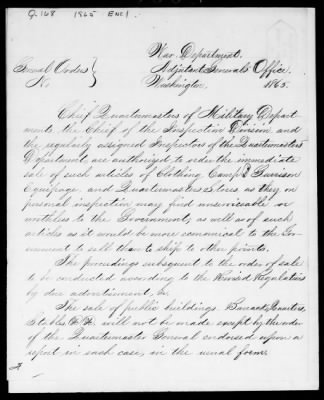 Q. 168 1865 Encl
War Department.
General Orders } Adjutant General's Office,
No Washington, 1865.
Chief Quartermasters of Military Depart
ments, the Chief of the Inspection Division and
the regularly assigned Inspectors of the Quartermasters
Department are authorized to order the immediate
sale of such articles of Clothing Camp & Garrison
Equipage, and Quartermasters stores as they on
personal inspection may find unserviceable or
worthless to the Government, as well as of such
articles as it would be more economical to the Gov-
ernment to sell than to ship to other points.
The proceedings subsequent to the order of sale
to be conducted according to the Revised Regulations
by due advertisement, &c.
The sale of public buildings. Barracks, Quarters,
Stables &c &c. will not be made except by the order
of the Quartermaster General endorsed upon a
report in each case, in the usual form.